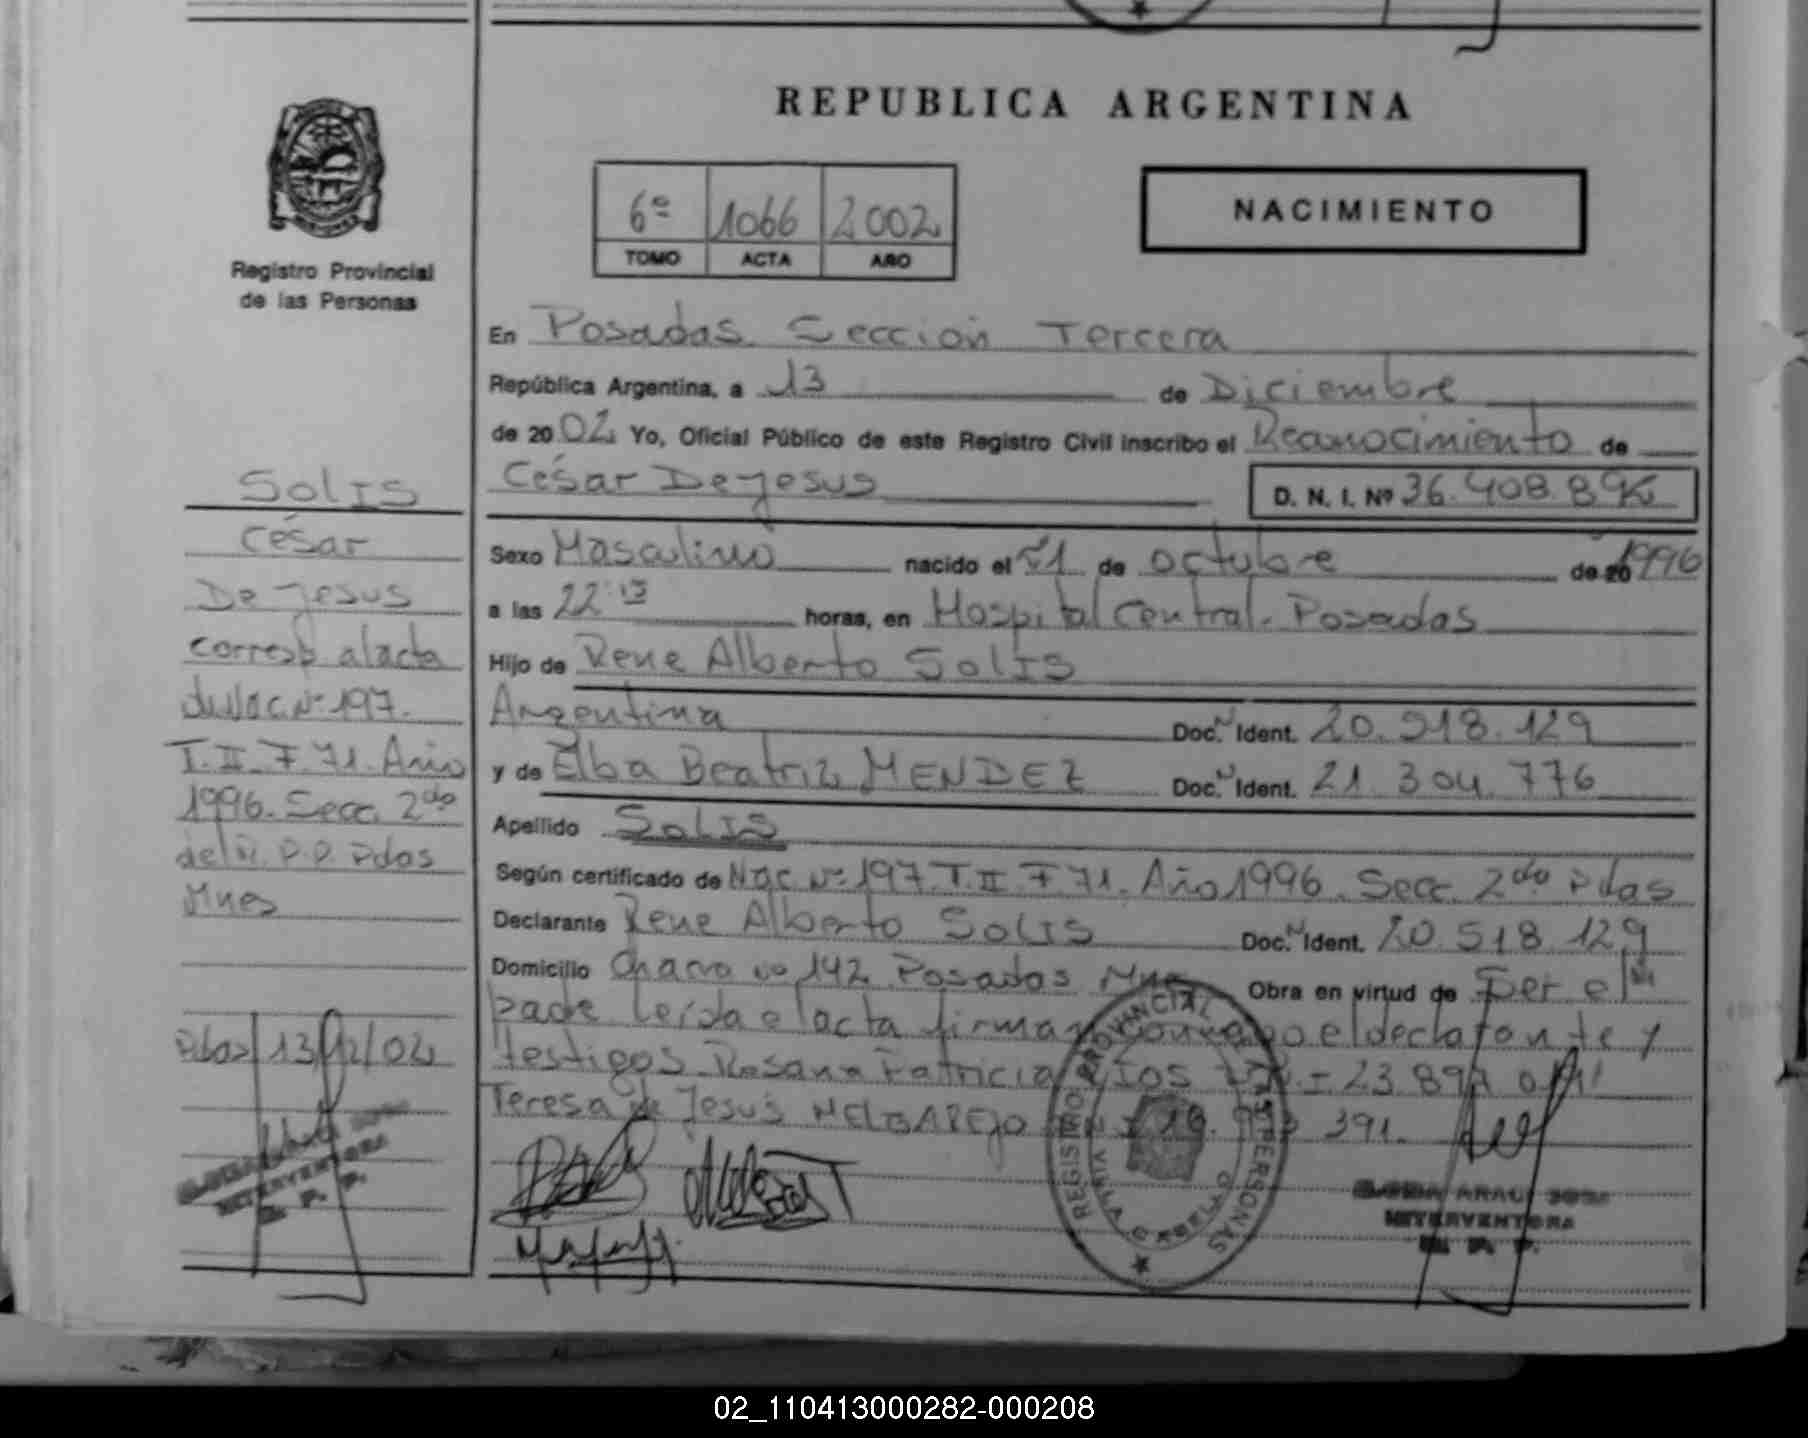 REPUBLICA ARGENTINA
6º 1066 2002
TOMO ACTA AÑO
NACIMIENTO
Registro Provincial
de las Personas
En Posadas Sección Tercera
República Argentina, a 13 de Diciembre
de 2002 Yo, Oficial Público de este Registro Civil inscribo el Reconocimiento de
César De Jesus D. N. I. Nº 36.408.89
Sexo Masculino nacido el de octubre de 20 1996
a las 22 15 horas, en Hospital Central. Posadas
Hijo de Rene Alberto SolIS
Argentina Doc. N Ident. 20.518.129
y de Elba Beatriz MENDEZ Doc. N Ident. 21.304.776
Apellido SolIS
Según certificado de Nac Nº 197. T. II. F 71. Año 1996. Secc. 2do Pdas
Declarante Rene Alberto SolIS Doc. N Ident. 20.518.129
Domicilio Chacra Nº 142 Posadas Mnes Obra en virtud de Ser el
padre leída el acta firman conmigo el declarante y
testigos Rosana Patricia
Teresa de Jesus MELGAREJO 391.
SolIS
César
De Jesus
corresp. al acta
de Nac. Nº 197.
T. II. F. 71. Año
1996. Secc. 2do
del R. P. P. Pdas
Mnes
Pdas 13/12/02
INTERVENTORA
R. P. P.
REGISTRO PROVINCIAL DE LAS PERSONAS
INTERVENTORA
R. P. P.
02_110413000282-000208